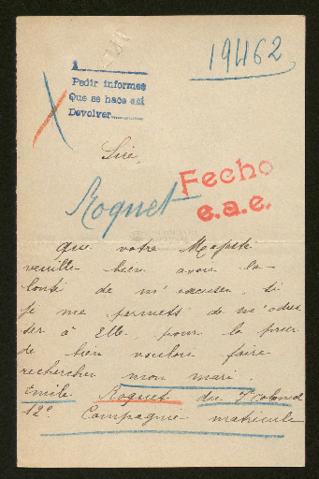 19462
1
Pedir informes
Que se hace así
Devolver
Sire,
Roquet
Fecho
e.a.e.
Que votre Majesté
veuille bien avoir la
bonté de m'excuser, si
je me permets de m'adres
ser à Elle, pour la prier
de bien vouloir faire
rechercher mon mari
Emile Roquet du colonial
12e Compagnie matricule